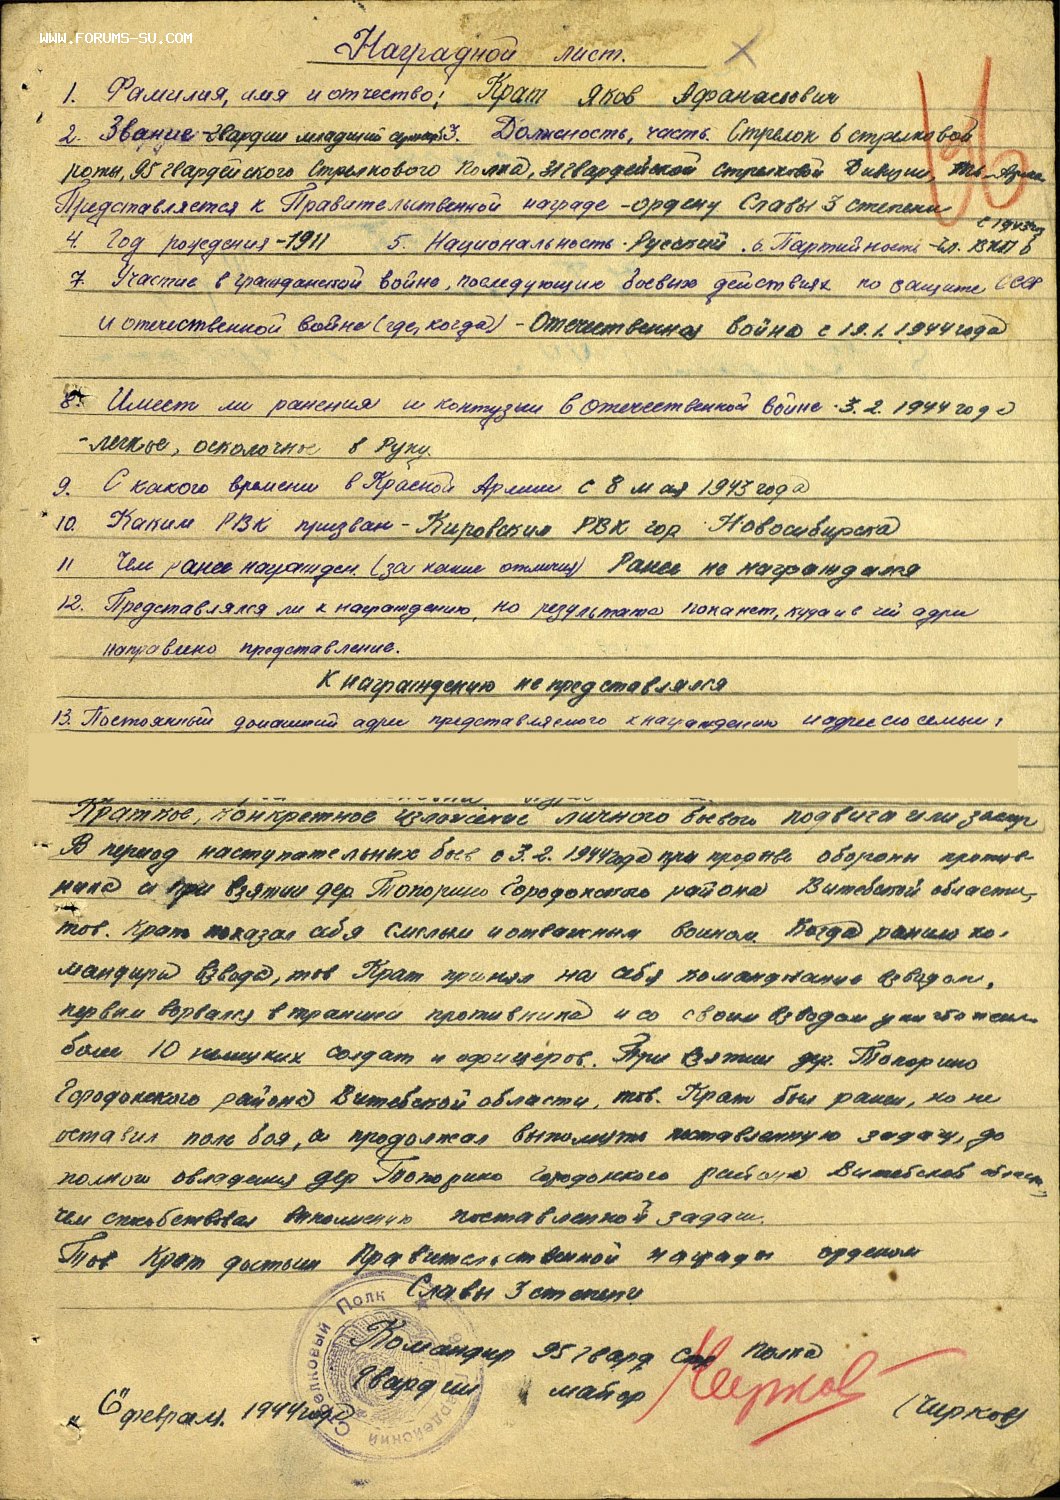 WWW.FORUMS-SU.COM
Наградной лист.
1. Фамилия, имя и отчество: Крат Яков Афанасьевич
2. Звание - Гвардии младший 3. Должность, часть. Стрелок 6 стрелковой
роты, 95 Гвардейского Стрелкового Полка, 31 Гвардейской Стрелковой Дивизии,
Представляется к Правительственной награде - ордену Славы 3 степени
с 1943г
4. Год рождения - 1911 5. Национальность - Русский. 6. Партийность - чл. ВКП б
7. Участие в гражданской войне, последующих боевых действиях по защите СССР
и отечественной войне (где, когда) - Отечественная война с 19.1.1944 года
8. Имеет ли ранения и контузии в отечественной войне - 3.2.1944 года
- легкое, осколочное в руку.
9. С какого времени в Красной Армии с 8 мая 1943 года
10. Каким РВК призван - Кировским РВК гор Новосибирска
11 Чем ранее награжден (за какие отличия) Ранее не награждался
12. Представлялся ли к награждению, но результата пока нет, куда и в чей адрес
направлено представление.
К награждению не представлялся
13. Постоянный домашний адрес представляемого к награждению и адрес его семьи:
Краткое, конкретное изложение личного боевого подвига или заслуг
В период наступательных боев с 3.2.1944 года при прорыве обороны против-
ника и при взятии дер. Топорино Городокского района Витебской области,
тов. Крат показал себя смелым и отважным воином. Когда ранило ко-
мандира взвода, тов Крат принял на себя командование взводом,
первым ворвался в траншеи противника и со своим взводом уничтожил
более 10 немецких солдат и офицеров. При взятии дер. Топорино
Городокского района Витебской области, тов. Крат был ранен, но не
оставил поле боя, а продолжал выполнять поставленную задачу, до
полного овладения дер Топорино Городокского района Витебской област,
чем способствовал выполнению поставленной задачи.
Тов Крат достоин Правительственной награды орденом
Славы 3 степени
Командир 95 Гвард Стр Полка
Гвардии майор Чирков (Чирков)
"6" февраля 1944 года
Стрелковый Полк